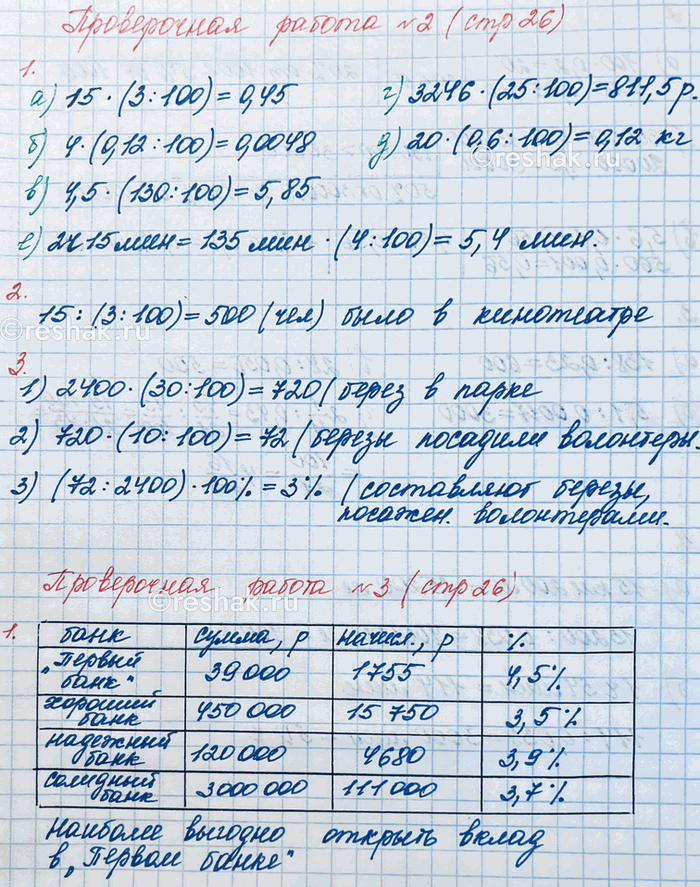 Проверочная работа №2 (стр 26)
1.
а) 15 · (3:100) = 0,45
г) 3246 · (25:100) = 811,5 р.
б) 4 · (0,12:100) = 0,0048
д) 20 · (0,6:100) = 0,12 кг
в) 4,5 · (130:100) = 5,85
е) 2ч 15 мин = 135 мин · (4:100) = 5,4 мин.
2.
15 : (3:100) = 500 (чел) было в кинотеатре
3.
1) 2400 · (30:100) = 720 (берез в парке
2) 720 · (10:100) = 72 (березы посадили волонтеры.
3) (72:2400) · 100% = 3% (составляют березы,
посажен. волонтерами.
Проверочная работа №3 (стр 26)
1.
банк сумма, р начисл., р %
"Первый банк" 39 000 1755 4,5%
хороший банк 450 000 15 750 3,5%
надежный банк 120 000 4680 3,9%
солидный банк 3 000 000 111 000 3,7%
Наиболее выгодно открыть вклад
в „Первом банке"
© reshak.ru
© reshak.ru
© reshak.ru
© reshak.ru